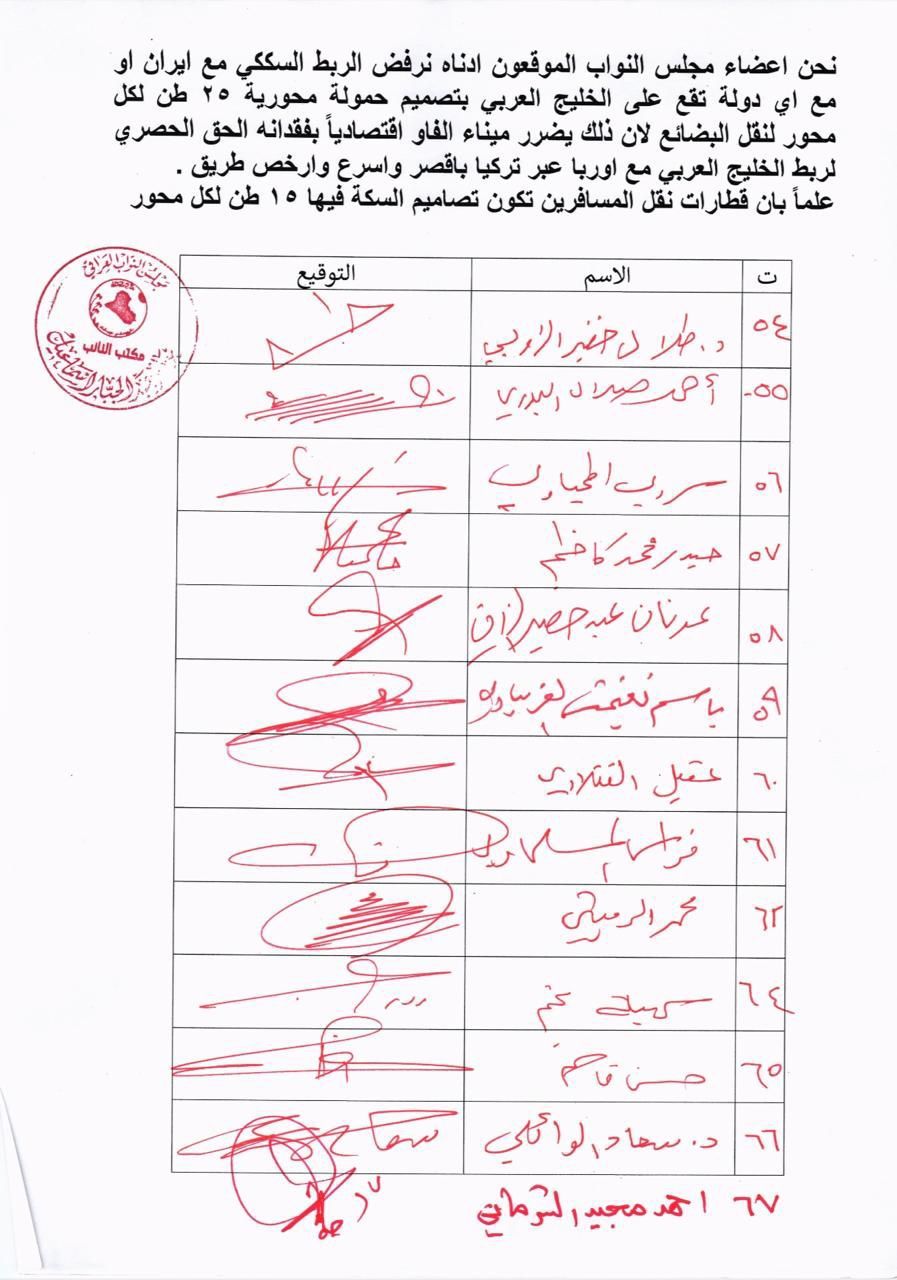 نحن اعضاء مجلس النواب الموقعون ادناه نرفض الربط السككي مع ايران او
مع اي دولة تقع على الخليج العربي بتصميم حمولة محورية ٢٥ طن لكل
محور لنقل البضائع لان ذلك يضرر ميناء الفاو اقتصادياً بفقدانه الحق الحصري
لربط الخليج العربي مع اوربا عبر تركيا باقصر واسرع وارخص طريق .
علماً بان قطارات نقل المسافرين تكون تصاميم السكة فيها ١٥ طن لكل محور
مجلس النواب العراقي
مكتب النائب
ت الاسم التوقيع
٥٤ د. طلال خضير الزوبعي
٥٥ أحمد صلال البدري
٥٦
٥٧ حيدر محمد كاظم
٥٨ عدنان عبد خضير
٥٩ باسم نغيمش
٦٠ عقيل الفتلاوي
٦١ فراس المسلماوي
٦٢ محمد الرميثي
٦٤ سهيلة
٦٥ حسن قاسم
٦٦ د. سعاد الوائلي سعاد
٦٧ احمد مجيد